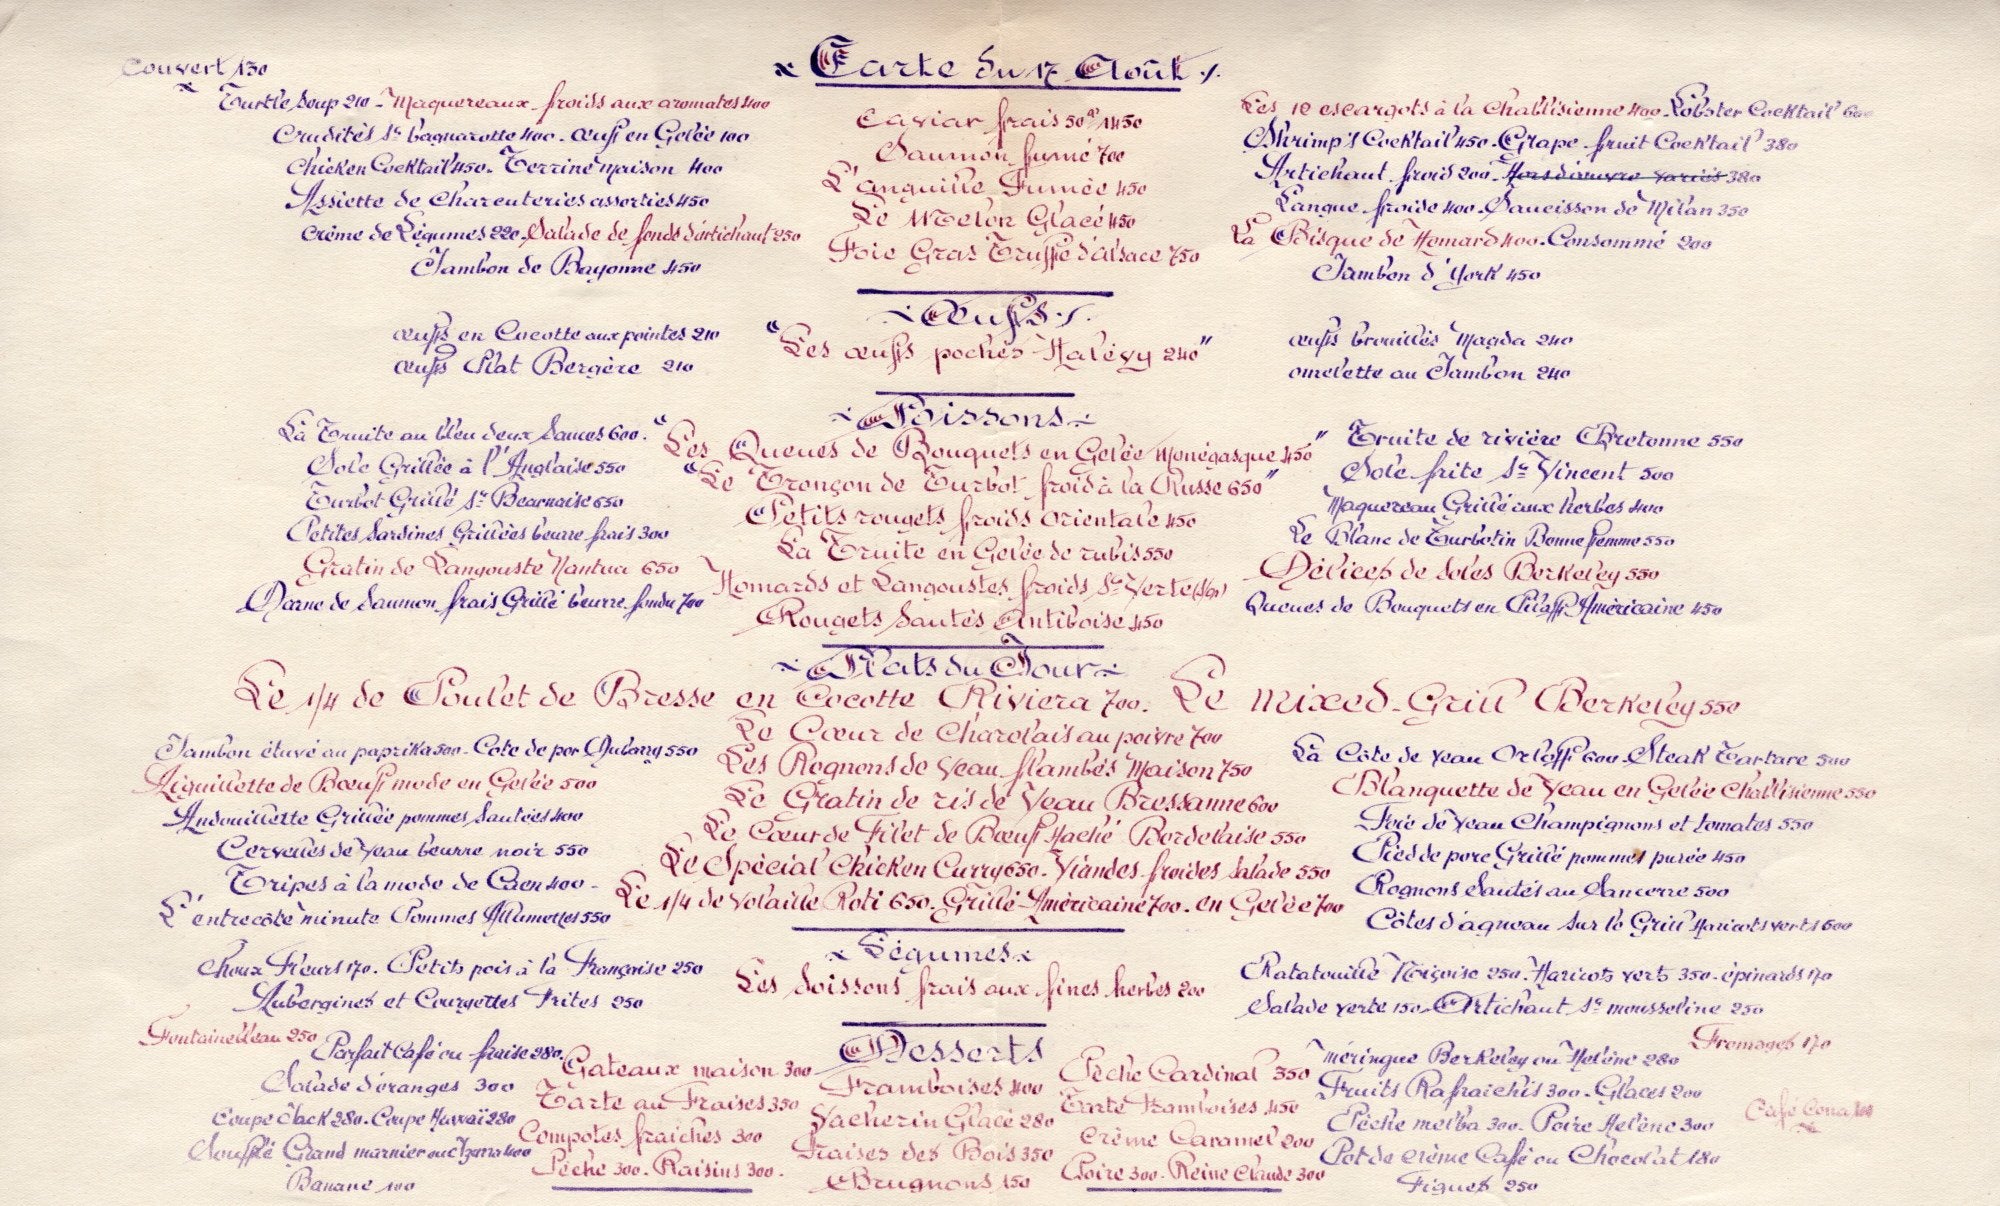 Carte du 17 Août
Couvert 130
Turtle Soup 210 - Maquereaux froids aux aromates 400
Crudités Sce bagnarotte 400 - œufs en Gelée 100
Chicken Cocktail 450 - Terrine Maison 400
Assiette de Charcuteries assorties 450
Crème de Légumes 220 - Salade de fonds d'artichaut 250
Jambon de Bayonne 450
Caviar frais 50gr 1450
Saumon fumé 700
L'anguille Fumée 450
Le Melon Glacé 450
Foie Gras Truffé d'alsace 750
Les 12 escargots à la Chablisienne 400 - Lobster Cocktail 600
Shrimp's Cocktail 450 - Grape fruit Cocktail 380
Artichaut froid 200 - Hors d'œuvre variés 380
Langue froide 400 - Saucisson de Milan 350
La Bisque de Homard 400 - Consommé 200
Jambon d'York 450
Œufs
œufs en Cocotte aux pointes 210
œufs Plat Bergère 210
"Les œufs pochés Halévy 240"
œufs brouillés Magda 240
omelette au Jambon 240
Poissons
La Truite au bleu deux Sauces 600
Sole Grillée à l'Anglaise 550
Turbot Grillé Sce Bearnaise 650
Petites Sardines Grillées beurre frais 300
Gratin de Langouste Nantua 650
Darne de Saumon frais Grillé beurre fondu 700
"Les Queues de Bouquets en Gelée Monégasque 450"
"Le Tronçon de Turbot froid à la Russe 650"
Petits rougets froids Orientale 450
La Truite en Gelée de rubis 550
Homards et Langoustes froids Sce Verte (Sgr)
Rougets Sautés Antiboise 450
Truite de rivière Bretonne 550
Sole frite St Vincent 500
Maquereau Grillé aux herbes 400
Le Blanc de Turbotin Bonne femme 550
Délices de Soles Berkeley 550
Queues de Bouquets en Pilaff Américaine 450
Plats du Jour
Le 1/4 de Poulet de Bresse en Cocotte Riviera 700. Le Mixed-Grill Berkeley 550
Jambon étuvé au paprika 500 - Cote de porc Dubarry 550
Aiguillette de Bœuf mode en Gelée 500
Andouillette Grillée pommes Sautées 400
Cervelles de Veau beurre noir 550
Tripes à la mode de Caen 400 -
L'entrecôte minute Pommes Allumettes 550
Le Cœur de Charolais au poivre 700
Les Rognons de Veau flambés Maison 750
Le Gratin de ris de Veau Bressanne 600
Le Cœur de Filet de Bœuf Haché Bordelaise 550
Le Spécial Chicken Curry 650 - Viandes froides Salade 550
Le 1/4 de Volaille Roti 650 - Grillé Américaine 700 - en Gelée 700
La Côte de Veau Orloff 600 - Steak Tartare 500
Blanquette de Veau en Gelée Chablisienne 550
Foie de Veau Champignons et tomates 550
Pied de porc Grillé pommes purée 450
Rognons Sautés au Sancerre 500
Côtes d'agneau sur le Grill Haricots verts 600
Légumes
Choux Fleurs 170 - Petits pois à la Française 250
Aubergines et Courgettes Frites 250
Les Soissons frais aux fines herbes 200
Ratatouille Niçoise 250 - Haricots verts 350 - épinards 170
Salade verte 150 - Artichaut Sce mousseline 250
Desserts
Fontainebleau 250
Parfait Café ou fraise 280
Salade d'oranges 300
Coupe Jack 280 - Coupe Hawaï 280
Soufflé Grand marnier ou 400
Banane 100
Gateaux maison 300
Tarte au Fraises 350
Compotes fraiches 300
Pêche 300 - Raisins 300
Framboises 400
Vacherin Glacé 280
Fraises des Bois 350
Brugnons 150
Pêche Cardinal 350
Tarte Framboises 450
Crème Caramel 200
Poire 300 - Reine Claude 300
Méringue Berkeley ou Helène 280
Fruits Rafraichis 300 - Glaces 200
Pêche melba 300 - Poire Helène 300
Pot de crème Café ou Chocolat 180
Figues 250
Fromages 170
Café Cona 100